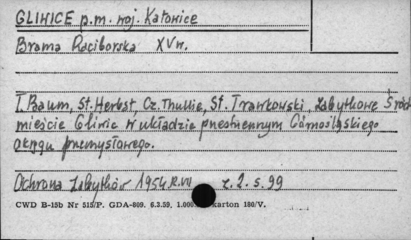 GLIWICE p.m. woj. Katowice
Brama Raciborska XV w.
T. Baum, St. Herbst, Cz. Thullie, St. Trawkowski, Zabytkowe Śród
mieście Gliwic w układzie przestrzennym Górnośląskiego
okręgu przemysłowego.
Ochrona Zabytków 1954 R.VII z.2. s.99
CWD B-15b Nr 515/P. GDA-809. 6.3.59, 1.000. karton 180/V.